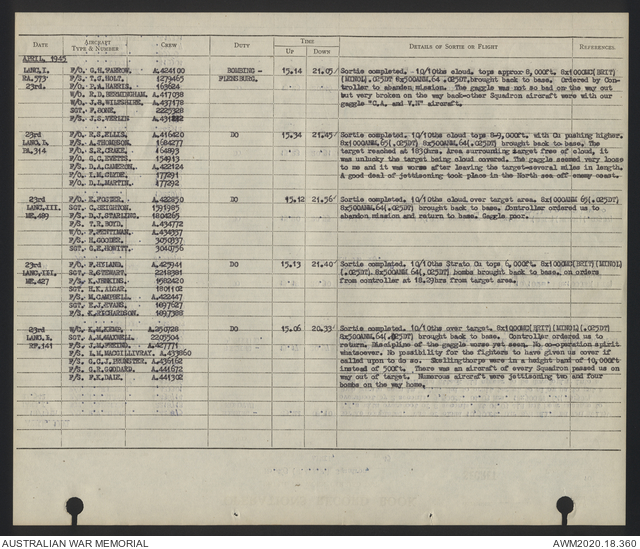 DATE AIRCRAFT TYPE & NUMBER CREW DUTY TIME DETAILS OF SORTIE OR FLIGHT REFERENCES.
UP DOWN
APRIL, 1945
LANC.I. F/O. A.424100 BOMBING - 15.14 21.05 Sortie completed. 10/10ths cloud, tops approx 8,000ft. 8x1000MC(BRIT)
RA.573 F/S. T.G. HOLT. 1279465 FLENSBURG. (MINOL).025DT 8x500ANM.64 .025DT,brought back to base. Ordered by Con-
23rd. F/O. P.A. HARRIS. 163624 troller to abandon mission. The gaggle was not so bad on the way out
W/O. R.D. BERMINGHAM. A.417038 but very broken on the way back-other Squadron aircraft were with our
W/O. A.437178 gaggle "C.A. and V.N" aircraft.
SGT. F. BONE. 2225328
F/S. J.S. VERLIN
23rd F/O. R.S. ELLIS. A.416420 DO 15.34 21.45 Sortie completed. 10/10ths cloud tops 8-9,000ft. with Cu pushing higher.
LANC.I. F/S. A. THOMPSON. 1684277 8x1000ANM.65(.025DT) 8x500ANM.64(.025DT) brought back to base. The
PA.314 F/O. S.R. CRAKE. 164893 target reached at 18hrs. Area surrounding target free of cloud, it
F/O. G.C. EVETTS. 154913 was unlucky the target being cloud covered. The gaggle seemed very loose
F/S. D.A. CAMERON. A.422124 to me and it was worse after leaving the target-several miles in length.
F/O. I.M. CLYDE. 177291 A good deal of jettisoning took place in the North sea off enemy coast.
F/O. D.L. MARTIN. 177292
23rd F/O. K. FOSTER. A.422850 DO 15.12 21.56 Sortie completed. 10/10ths cloud over target area. 8x1000ANM 65(.025DT)
LANC.III. SGT. C. BEIGHTON. 1591985 8x500ANM.64(.025DT) brought back to base. Controller ordered us to
ME.489 F/S. D.J. STARLING. 1804265 abandon mission and return to base. Gaggle poor.
F/S. T.R. BOYD. A.434772
W/O. F. PENTIMAN. A.434337
F/S. H. GOODER. 3050337
SGT. G.E. HOWITT. 3040756
23rd F/O. F. HYLAND. A.425941 DO 15.13 21.40 Sortie completed. 10/10ths Strato Cu tops 6,000ft. 8x1000MC(BRIT)(MINOL)
LANC.III. SGT. R. STEWART. 2218381 (.025DT).8x500ANM 64(.025DT) bombs brought back to base. on orders
ME.427 F/S. K. JENKINS. 1582420 from controller at 18.29hrs from target area.
SGT. H.K. ALGAR. 1801102
F/S. M. CAMPBELL. A.422447
SGT. K.J. EVANS. 1897627
F/S. K. RICHARDSON. 1897388
23rd W/C. M.A. KEMP. DO 15.06 20.33 Sortie completed. 10/10ths over target. 8x1000MC(BRIT)(MINOL)(.025DT)
LANC.I. SGT. A.M. MAXWELL. 2205504 8x500ANM.64(.025DT) brought back to base. Controller ordered us to
RF.141 F/S. A.427771 return. Discipline of the gaggle worse yet seen. No co-operation spirit
F/S. L.M. MACGILLIVRAY. A.433960 whatsoever. No possibility for the fighters to have given us cover if
F/S. G.C.J. A.436162 called upon to do so. Skellingthorpe were in a height band of 10,000ft
F/S. G.R. GODDARD. A.441672 instead of 500ft. There was an aircraft of every Squadron passed us on
F/S. F.K. DAIK. A.441502 way out of target. Numerous aircraft were jettisoning two and four
bombs on the way home.
AUSTRALIAN WAR MEMORIAL AWM2020.18.360